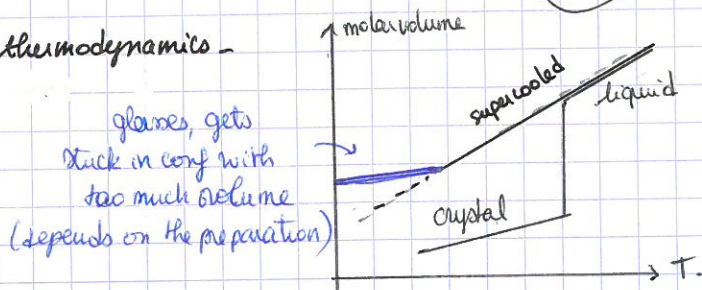 thermodynamics -
molar volume
glasses, gets
stuck in conf with
too much volume
(depends on the preparation)
supercooled
liquid
crystal
T.